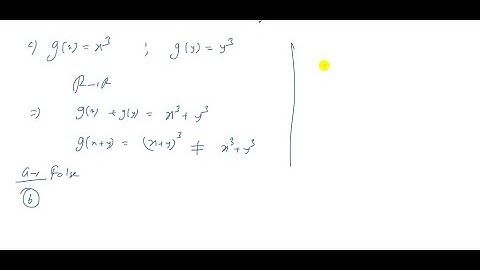 c) g(x) = x³ ; g(y) = y³
R→R
⇒ g(x) + g(y) = x³ + y³
g(x+y) = (x+y)³ ≠ x³+y³
a→ False
(b)